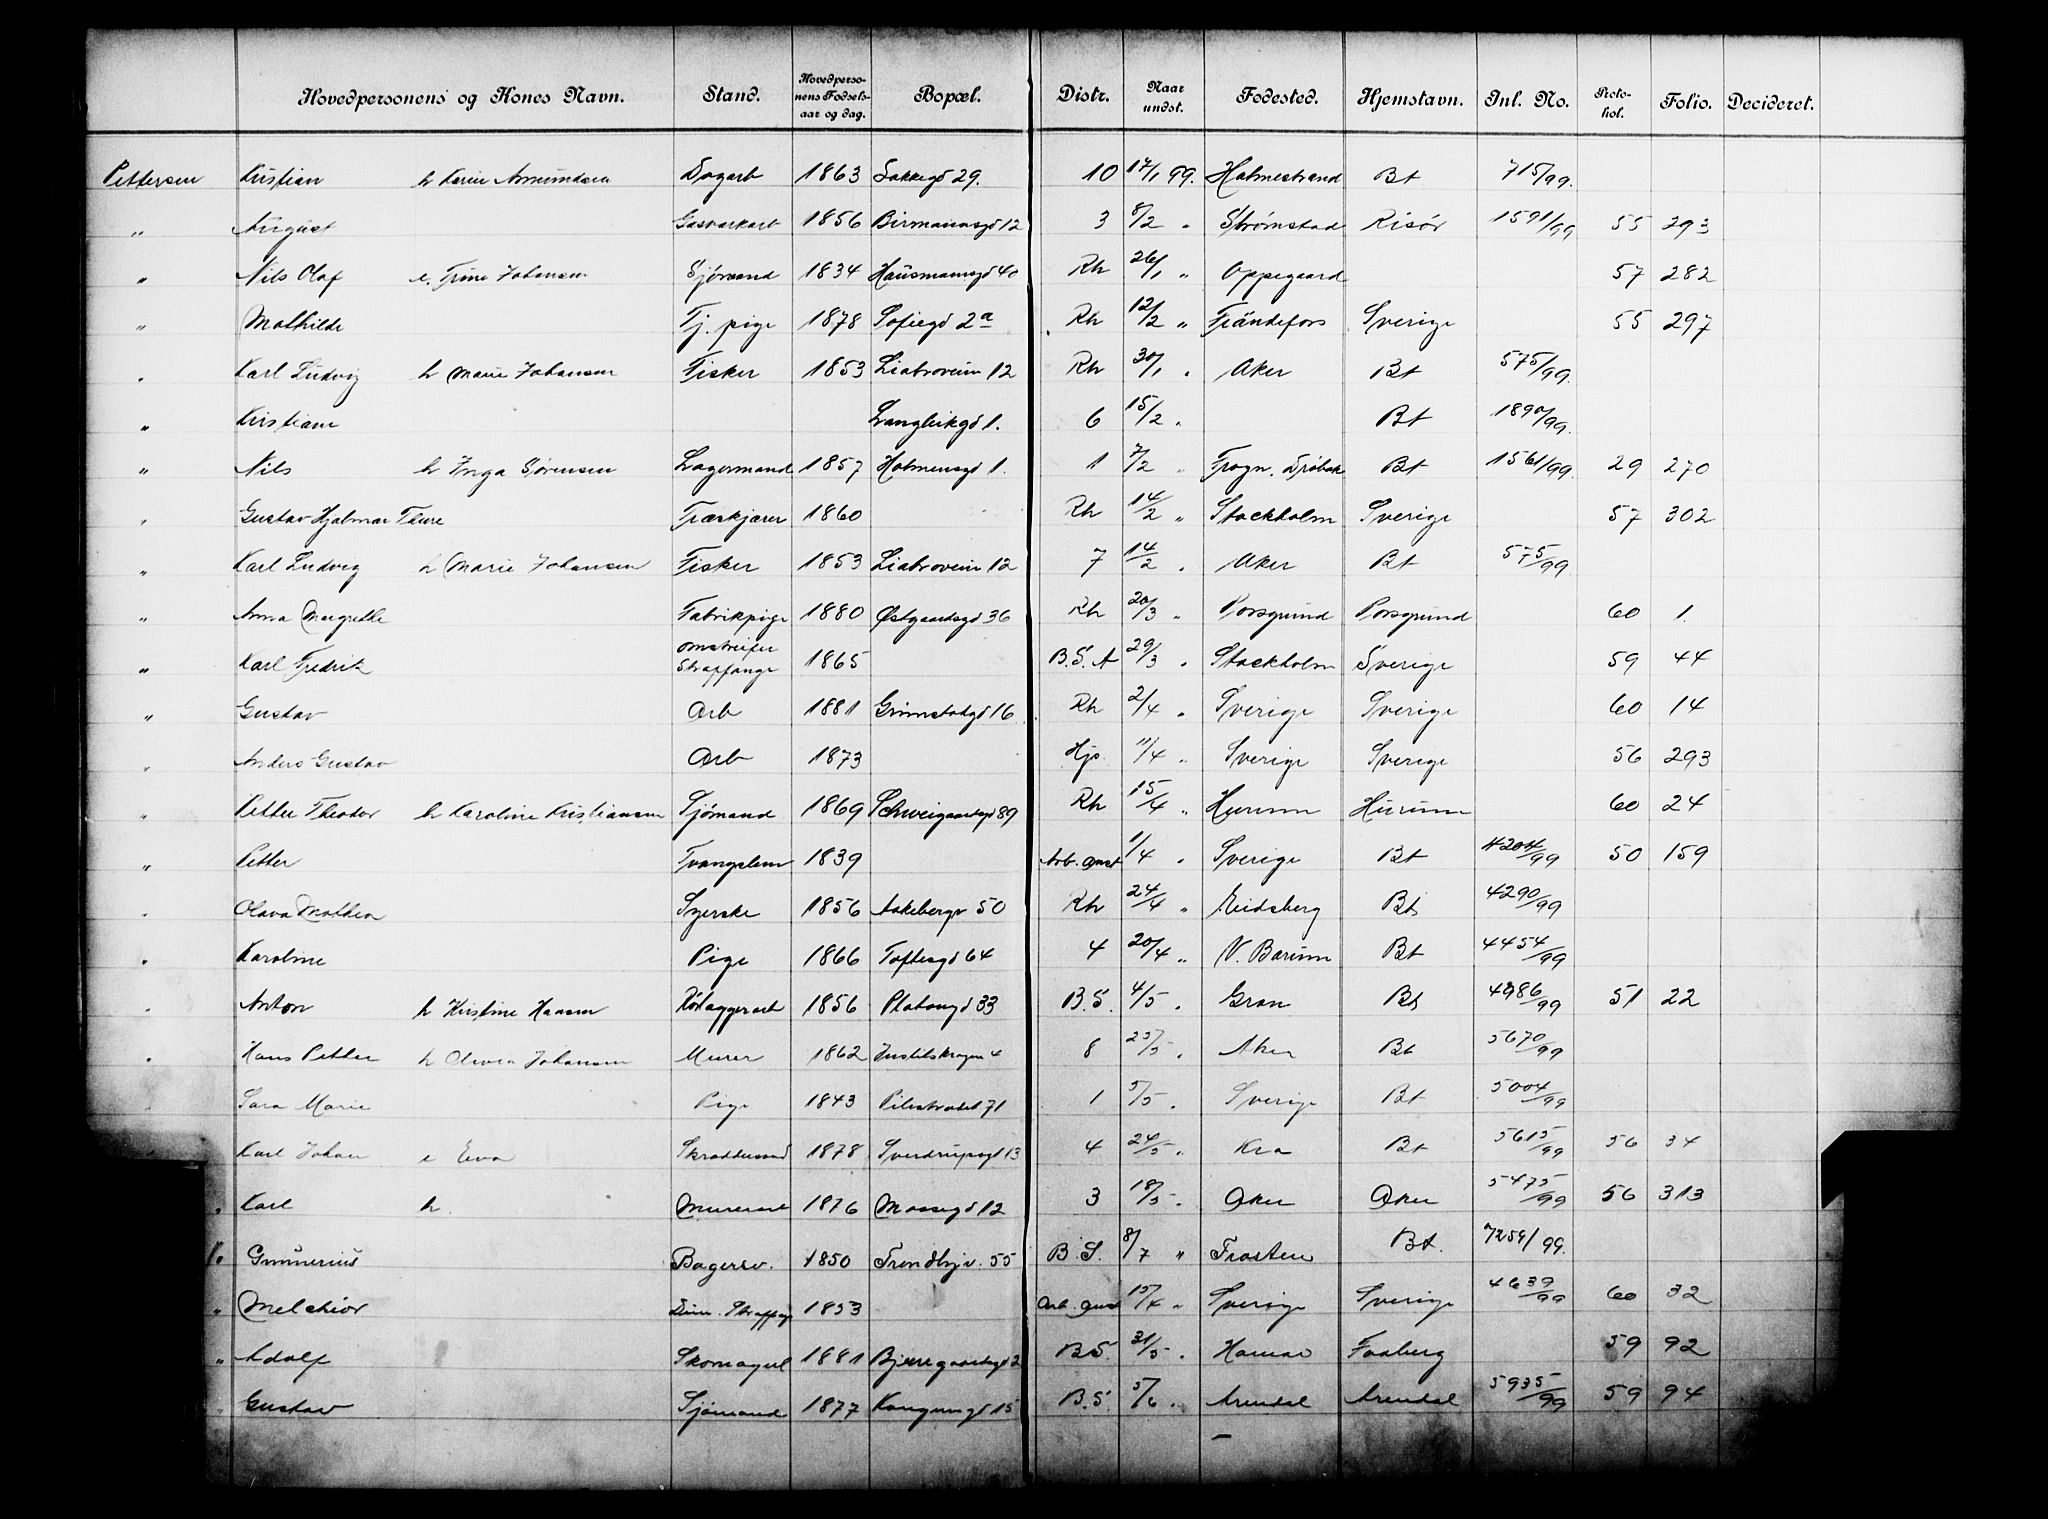 Hovedpersonens og Kones Navn. Stand. Hovedpersonens Fødselsaar og dag. Bopæl. Distr. Naar undst. Fødested. Hjemstavn. Inl. No. Protokol. Folio. Decideret.
Pettersen Kristian h Karin Amundsen Dagarb 1863 Lakkegd 29. 10 17/1 99. Holmestrand Bt 715/99.
" August Gasverkarb 1856 Birmannsgd 12 3 8/2 " Strømstad Risör 1591/99 55 293
" Nils Olaf e. Trine Johansen Sjømand 1834 Hausmannsgd 40 Rh 26/1 " Oppegaard 57 282
" Mathilde Tj. pige 1878 Sofiegd 2a Rh 12/2 " Frändefors Sverige 55 297
" Karl Ludvig h Marie Johansen Fisker 1853 Liabroveien 12 Rh 30/1 " Aker Bt 575/99.
" Kristiane Langleikgd 1. 6 15/2 " Bt 1890/99.
" Nils h Inga Sørensen Lagermand 1857 Holmensgd 1. 1 7/2 " Frogn. Drøbak Bt 1561/99. 29 270
" Gustav Hjalmar Ture Træskjærer 1860 Rh 14/2 " Stockholm Sverige 57 302
" Karl Ludvig h Marie Johansen Fisker 1853 Liabroveien 12 7 14/2 " Aker Bt 575/99.
" Anna Margrethe Fabrikpige 1880 Østgaardsgd 36 Rh 20/3 " Porsgrund Porsgrund 60 1.
" Karl Fredrik omstreifer Straffange 1865 B.S.A 29/3 " Stockholm Sverige 59 44
" Gustav Arb 1881 Grimstadgd 16 Rh 2/4 " Sverige Sverige 60 14
" Anders Gustav Arb 1873 Hjs. 11/4 " Sverige Sverige 56 293
" Petter Theodor h Karoline Kristiansen Sjømand 1869 Schweigaardsgd 89 Rh 15/4 " Hurum Hurum 60 24
" Petter Tvangslem 1839 Arb. anst 1/4 " Sverige Bt 4204/99 50 159
" Olava Mathea Syerske 1856 Aakebergv 50 Rh 24/4 " Eidsberg Bt 4290/99
" Karoline Pige 1866 Toftesgd 64 4 20/4 " V. Bærum Bt 4454/99
" Anton h Kristine Hansen 1856 Platousgd 33 B.S. 4/5 " Gran Bt 4986/99 51 22
" Hans Petter h Olivia Johansen Murer 1862 8 23/5 " Aker Bt 5670/99
" Sara Marie Pige 1843 Pilestrædet 71 1 5/5 " Sverige Bt 5004/99
" Karl Johan e Eva Skræddersvend 1878 Sverdrupsgd 13 4 24/5 " Kra Bt 5615/99 56 34
" Karl h. Murerarb 1876 Mossegd 12 3 18/5 " Aker Aker 5475/99 56 313
" Gunnerius Bagersv. 1850 Trondhjv. 55 B.S. 8/7 " Frosten Bt. 7259/99.
" Melchior Dim. Straffange 1853 Arb. Anst 15/4 " Sverige Sverige 4639/99 60 32
" Adolf Skomagerl 1881 Bjerregaardsgd 2 B.S. 31/5 " Hamar Faaberg 59 92
" Gustav Sjømand 1877 Kongensgd 15 B.S. 5/6 " Arendal Arendal 5935/99 59 94